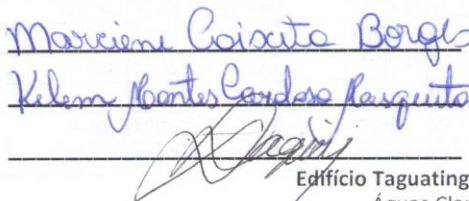 Marciene Caixeta Borges
Kelem Nantes Cardoso Mesquita
Edifício Taguating
Águas Cla